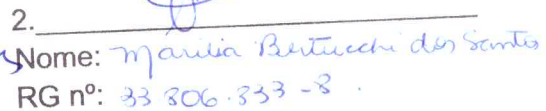 2.
Nome: Marilia Bertucchi dos Santos
RG nº: 33 806.333-8.